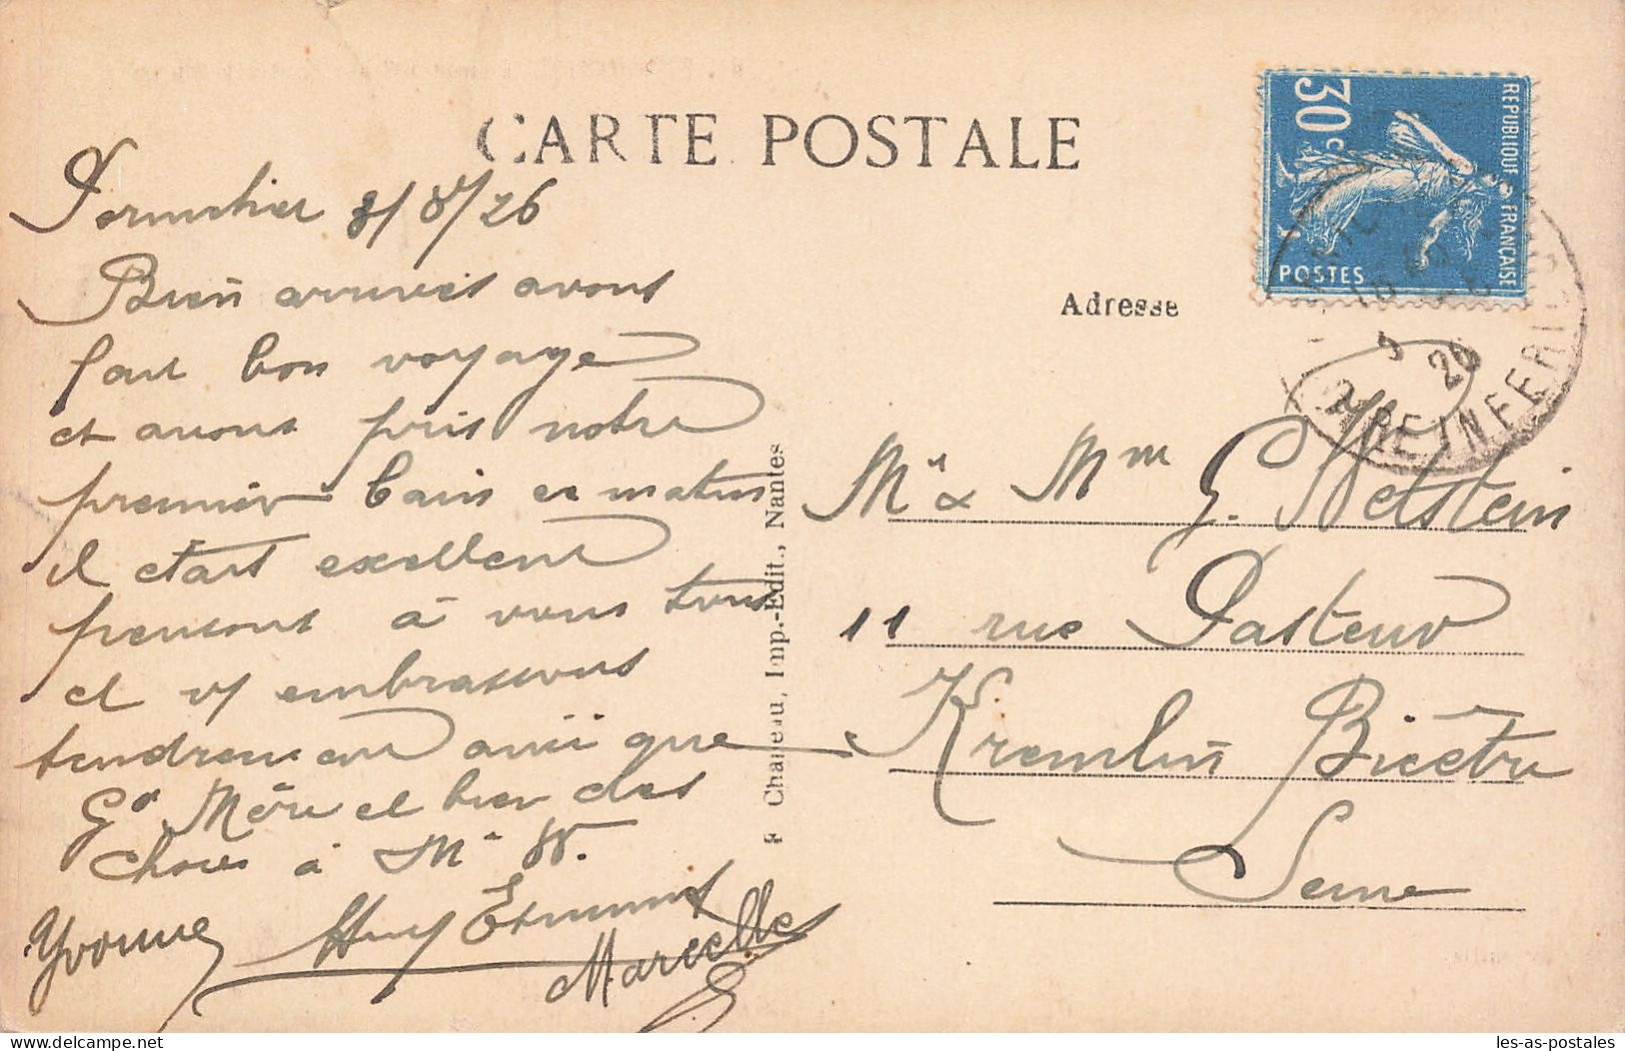 CARTE POSTALE
Pornichet 8/8/26
Bien arrivés avons
fait bon voyage
et avons pris notre
premier bain ce matin
il était excellent
pensons à vous tous
et vs embrassons
tendrement ainsi que
Gd Mère et bien des
choses à Mr W.
Yvonne Edmond
Marcelle
Imp.-Edit., Nantes
30c
REPUBLIQUE FRANÇAISE
POSTES
26
LOIRE INFERIEURE
Adresse
Mr & Mme G. Wetstein
11 rue Pasteur
Kremlin Bicêtre
Seine
les-as-postales